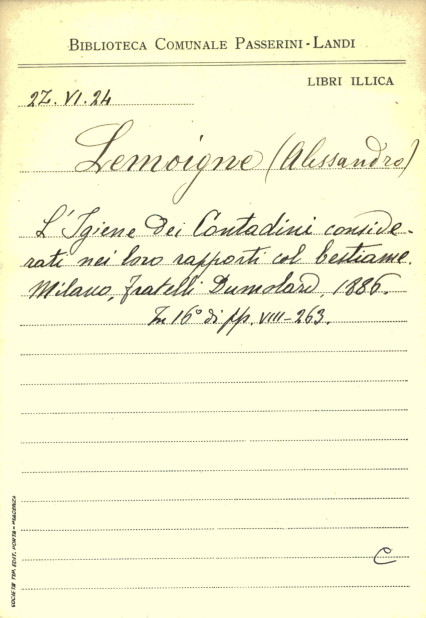 BIBLIOTECA COMUNALE PASSERINI-LANDI
LIBRI ILLICA
2Z. VI. 24
Lemoigne (Alessandro)
L'Igiene dei Contadini conside-
rati nei loro rapporti col bestiame.
Milano, fratelli Dumolard, 1886.
In 16° di pp. VIII-263.
C
SOCIETÀ TIP. EDIT. PORTA - PIACENZA